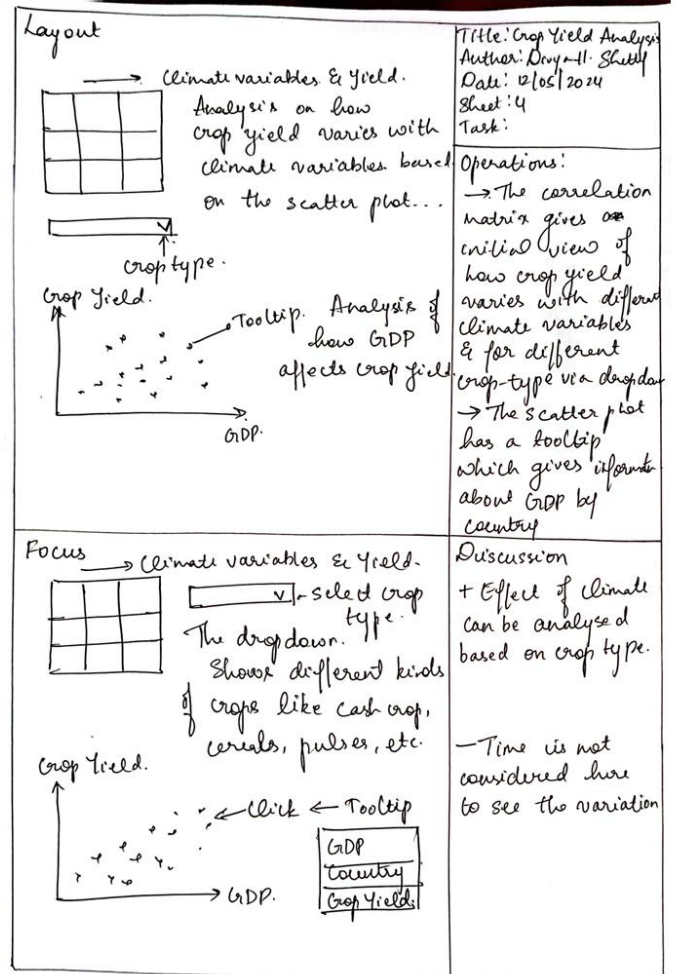 Layout
Climate variables & Yield.
Analysis on how
crop yield varies with
climate variables based
on the scatter plot...
crop type.
Crop Yield.
Tooltip. Analysis of
how GDP
affects crop yield.
GDP.
Title: Crop Yield Analysis
Author: Shetty
Date: 12/05/2024
Sheet: 4
Task:
Operations:
→ The correlation
matrix gives
initial view of
how crop yield
varies with different
climate variables
& for different
crop-type via dropdown
→ The scatter plot
has a tooltip
which gives information
about GDP by
country
Focus
Climate variables & Yield.
select crop
type.
The dropdown.
Shows different kinds
of crops like cash crop,
cereals, pulses, etc.
Crop Yield.
Click ← Tooltip
GDP
Country
Crop Yield.
GDP.
Discussion
+ Effect of climate
can be analysed
based on crop type.
- Time is not
considered here
to see the variation